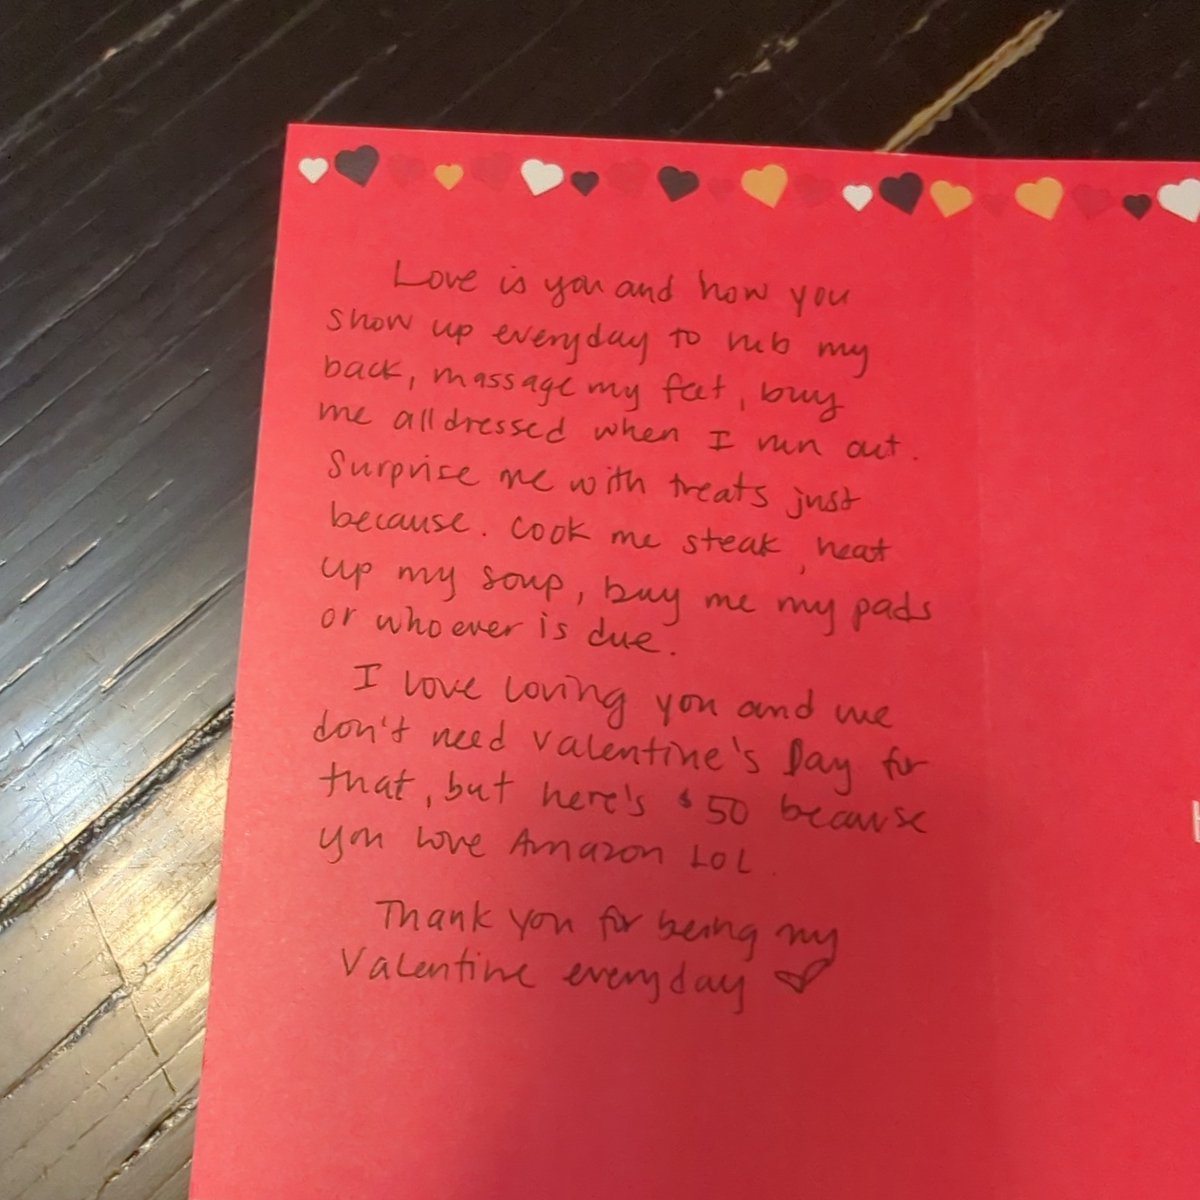 Love is you and how you
show up everyday to rub my
back, massage my feet, buy
me all dressed when I run out.
Surprise me with treats just
because. Cook me steak, heat
up my soup, buy me my pads
or whoever is due.
I love loving you and we
don't need Valentine's Day for
that, but here's $50 because
you love Amazon LOL.
Thank you for being my
Valentine everyday